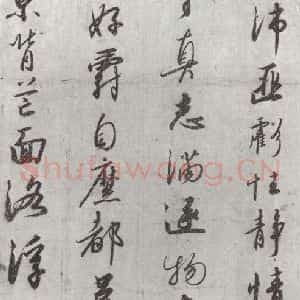 沛匪虧性静情
真志满逐物
好爵自縻都邑
京背芒面洛浮
shufawang.CN